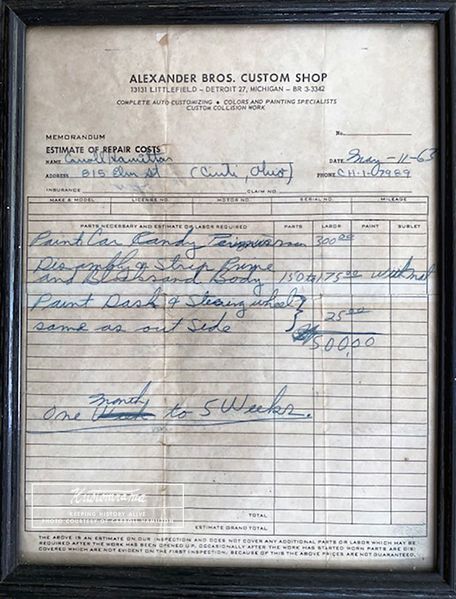 ALEXANDER BROS. CUSTOM SHOP
13131 LITTLEFIELD – DETROIT 27, MICHIGAN – BR 3-3342
COMPLETE AUTO CUSTOMIZING • COLORS AND PAINTING SPECIALISTS
CUSTOM COLLISION WORK
MEMORANDUM
No.
ESTIMATE OF REPAIR COSTS
NAME Carroll Hamilton DATE May-11-63
ADDRESS 815 Elm St (Cinti, Ohio) PHONE CH-1-7989
INSURANCE CLAIM NO.
MAKE & MODEL LICENSE NO. MOTOR NO. SERIAL NO. MILEAGE
PARTS NECESSARY AND ESTIMATE OF LABOR REQUIRED PARTS LABOR PAINT SUBLET
Paint Car Candy 300 00
Disambly & Strip Prime
and Block sand Body 150 to 175 00
Paint Dash & Stearing wheel
same as out Side 25 00
500.00
month
One Week to 5 Weeks.
Kustomrama
KEEPING HISTORY ALIVE
PHOTO COURTESY OF CARROLL HAMILTON
TOTAL
ESTIMATE GRAND TOTAL
THE ABOVE IS AN ESTIMATE ON OUR INSPECTION AND DOES NOT COVER ANY ADDITIONAL PARTS OR LABOR WHICH MAY BE
REQUIRED AFTER THE WORK HAS BEEN OPENED UP. OCCASIONALLY AFTER THE WORK HAS STARTED WORN PARTS ARE DIS-
COVERED WHICH ARE NOT EVIDENT ON THE FIRST INSPECTION. BECAUSE OF THIS THE ABOVE PRICES ARE NOT GUARANTEED.